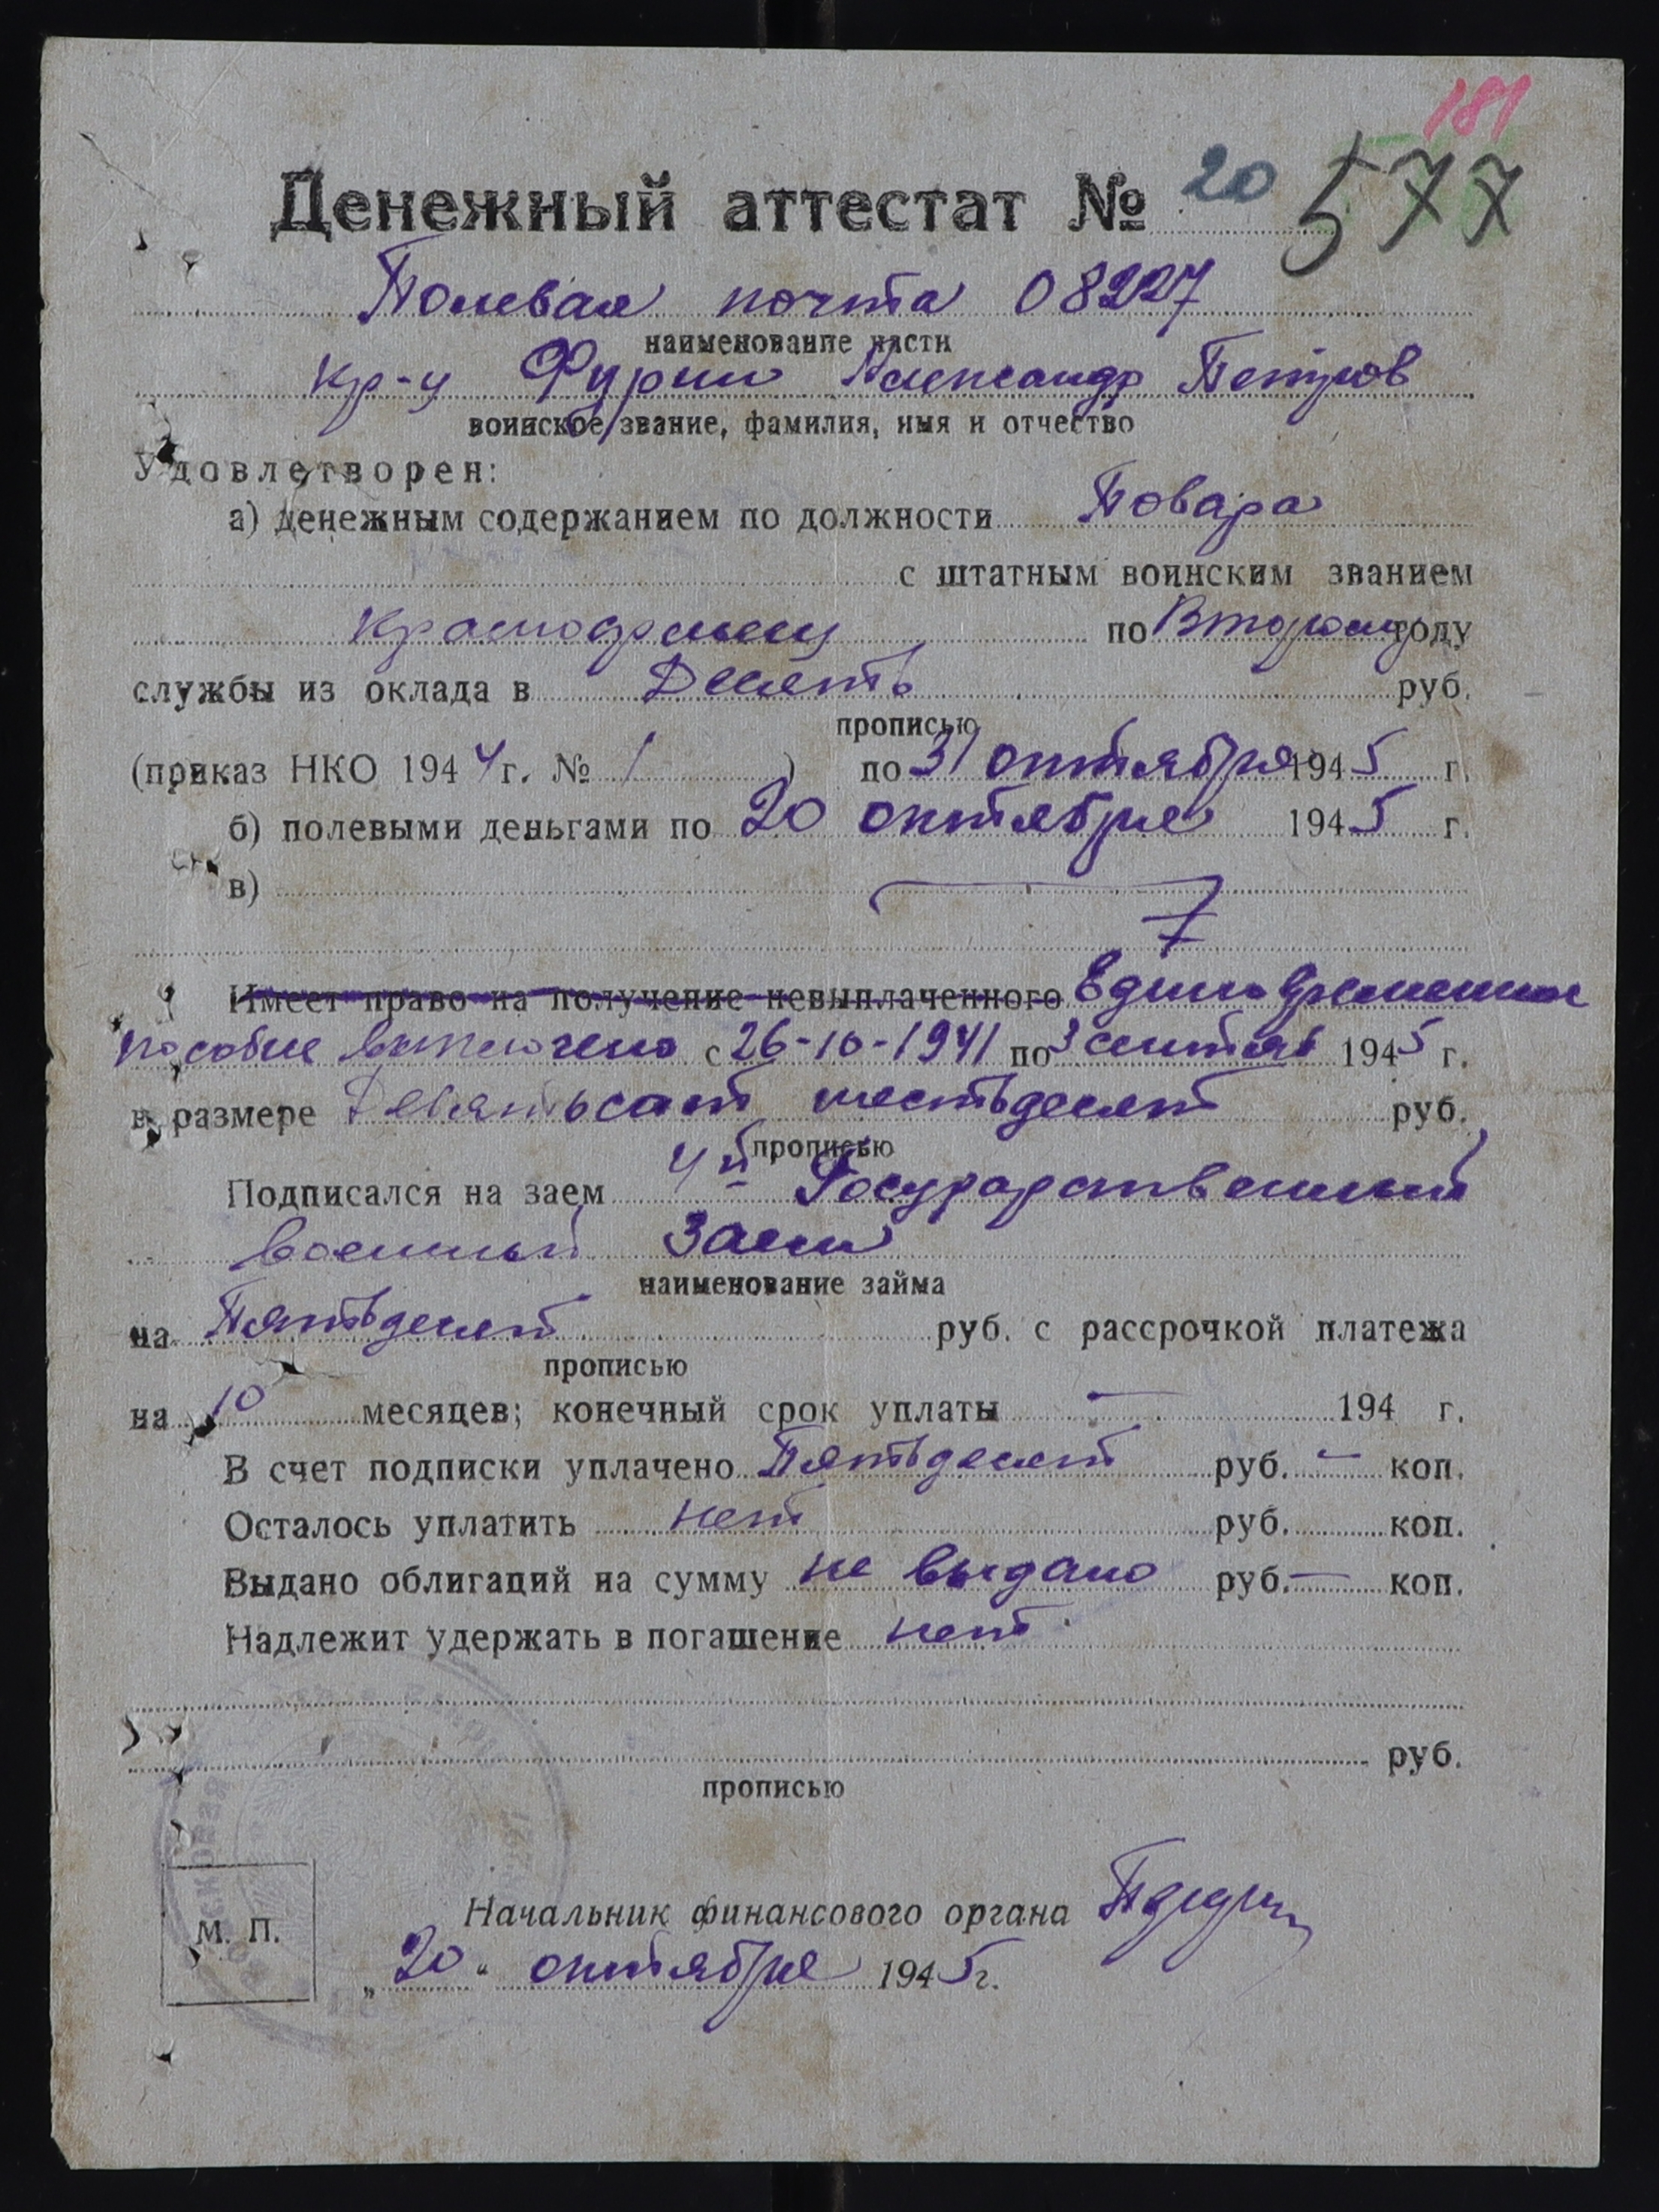 181
Денежный аттестат № 20 577
Полевая почта 08227
наименование части
кр-у Фурин Александр Петров
воинское звание, фамилия, имя и отчество
Удовлетворен:
а) денежным содержанием по должности Повара
с штатным воинским званием
красноармеец по Второму году
службы из оклада в Десять руб.
прописью
(приказ НКО 1944 г. № 1 ) по 31 октября 1945 г.
б) полевыми деньгами по 20 октября 1945 г.
в)
Имеет право на получение невыплаченного Единовременное
пособие выплочено с 26-10-1941 по 3 сентяб 1945 г.
в размере Девятьсот шестьдесят руб.
прописью
Подписался на заем 4й Государственный
военный Заем
наименование займа
на Пятьдесят руб. с рассрочкой платежа
прописью
на 10 месяцев; конечный срок уплаты — 194 г.
В счет подписки уплачено Пятьдесят руб. — коп.
Осталось уплатить нет руб. коп.
Выдано облигаций на сумму не выдано руб. — коп.
Надлежит удержать в погашение нет
руб.
прописью
Начальник финансового органа
М. П.
„20“ октября 1945 г.